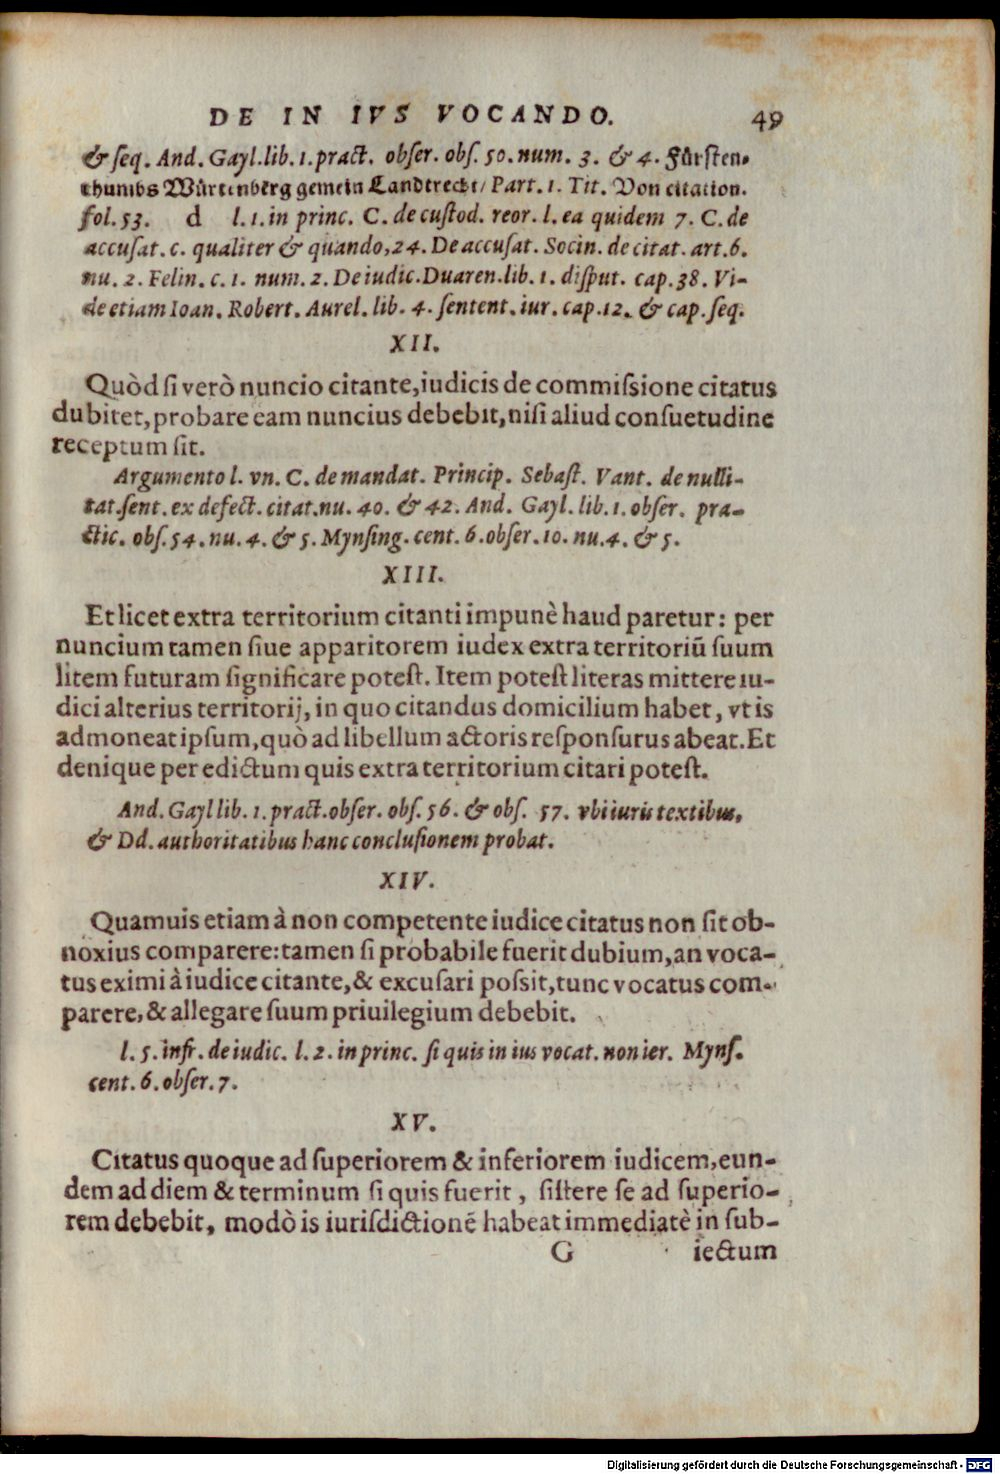 DE IN IVS VOCANDO. 49
& ſeq. And. Gayl. lib. 1. pract. obſer. obſ. 50. num. 3. & 4. Fürſten-
thumbs Würtenberg gemein Landtrecht/ Part. 1. Tit. Von citation.
fol. 53. d l. 1. in princ. C. de cuſtod. reor. l. ea quidem 7. C. de
accuſat. c. qualiter & quando, 24. De accuſat. Socin. de citat. art. 6.
nu. 2. Felin. c. 1. num. 2. De iudic. Duaren. lib. 1. diſput. cap. 38. Vi-
de etiam Ioan. Robert. Aurel. lib. 4. ſentent. iur. cap. 12. & cap. ſeq.
XII.
Quòd ſi verò nuncio citante, iudicis de commiſſione citatus
dubitet, probare eam nuncius debebit, niſi aliud conſuetudine
receptum ſit.
Argumento l. vn. C. de mandat. Princip. Sebaſt. Vant. de nulli-
tat. ſent. ex defect. citat. nu. 40. & 42. And. Gayl. lib. 1. obſer. pra-
ctic. obſ. 54. nu. 4. & 5. Mynſing. cent. 6. obſer. 10. nu. 4. & 5.
XIII.
Et licet extra territorium citanti impunè haud paretur: per
nuncium tamen ſiue apparitorem iudex extra territoriũ ſuum
litem futuram ſignificare poteſt. Item poteſt literas mittere iu-
dici alterius territorij, in quo citandus domicilium habet, vt is
admoneat ipſum, quò ad libellum actoris reſponſurus abeat. Et
denique per edictum quis extra territorium citari poteſt.
And. Gayl lib. 1. pract. obſer. obſ. 56. & obſ. 57. vbi iuris textibus,
& Dd. authoritatibus hanc concluſionem probat.
XIV.
Quamuis etiam à non competente iudice citatus non ſit ob-
noxius comparere: tamen ſi probabile fuerit dubium, an voca-
tus eximi à iudice citante, & excuſari poſſit, tunc vocatus com-
parere, & allegare ſuum priuilegium debebit.
l. 5. infr. de iudic. l. 2. in princ. ſi quis in ius vocat. non ier. Mynſ.
cent. 6. obſer. 7.
XV.
Citatus quoque ad ſuperiorem & inferiorem iudicem, eun-
dem ad diem & terminum ſi quis fuerit, ſiſtere ſe ad ſuperio-
rem debebit, modò is iurisdictionẽ habeat immediatè in ſub-
G iectum
Digitalisierung gefördert durch die Deutsche Forschungsgemeinschaft - DFG